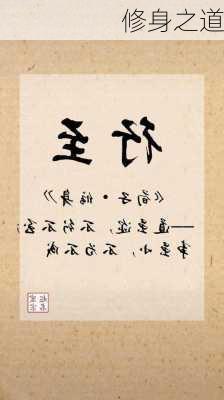 修身之道
行至
《荀子·修身》
——道虽迩，不行不至；
事虽小，不为不成